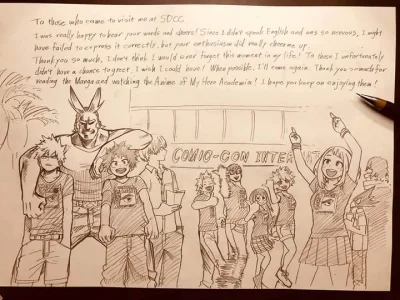 To those who came to visit me at SDCC
I was really happy to hear your words and cheers! Since I didn't speak English and was so nervous, I might
have failed to express it correctly, but your enthusiasm did really cheer me up.
Thank you so much, I don't think I would ever forget this moment in my life! To those I unfortunately
didn't have a chance to greet, I wish I could have! When possible, I'll come again. Thank you so much for
reading the Manga and watching the Anime of My Hero Academia! I hope you keep on enjoying them!
COMIC-CON INTER